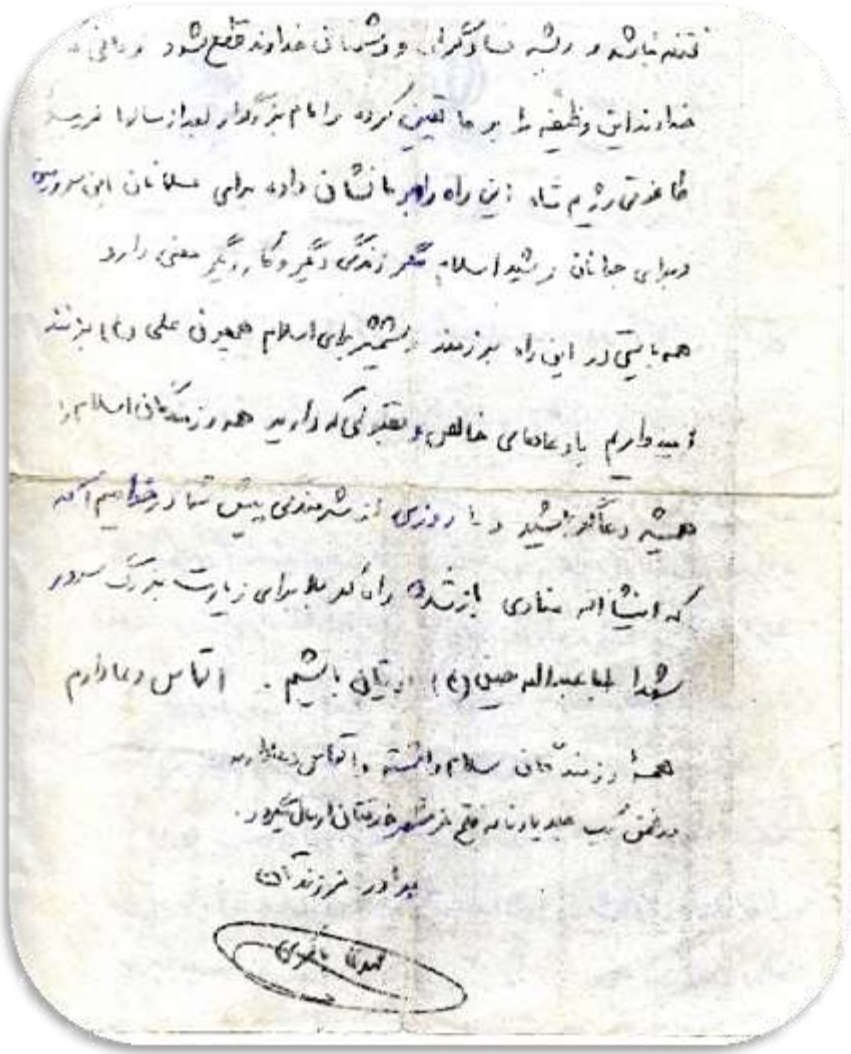 فتنه نباشد و ریشه فسادگران و دشمنان خداوند قطع شود
خداوند این وظیفه را بر ما تعیین کرده و امام بزرگوار بعد از سالها
طاغوتی رژیم شاه این راه را بر ما نشان داده برای مسلمانان این
و برای جوانان رشید اسلام مگر زندگی دیگر و کار دیگر معنی دارد
همه بایستی در این راه برزمند و شمشیر برای اسلام همچون علی (ع) بزنند
امیدوارم با دعاهای خالص و که دارید همه رزمندگان اسلام را
همیشه دعاگو باشید و ما روزی از شرمندگی پیش شما در خواهیم آمد
که انشااله منادی باز شدن راه کربلا برای زیارت بزرگ سرور
شهدا اباعبداله حسین (ع) برایتان باشیم . التماس دعا دارم
همهٔ رزمندگان سلام داشته و التماس دعا دارند
در ضمن یک جلد یادنامه فتح خرمشهر خدمتتان ارسال میگردد.
برادر و فرزندتان
مهدی باکری